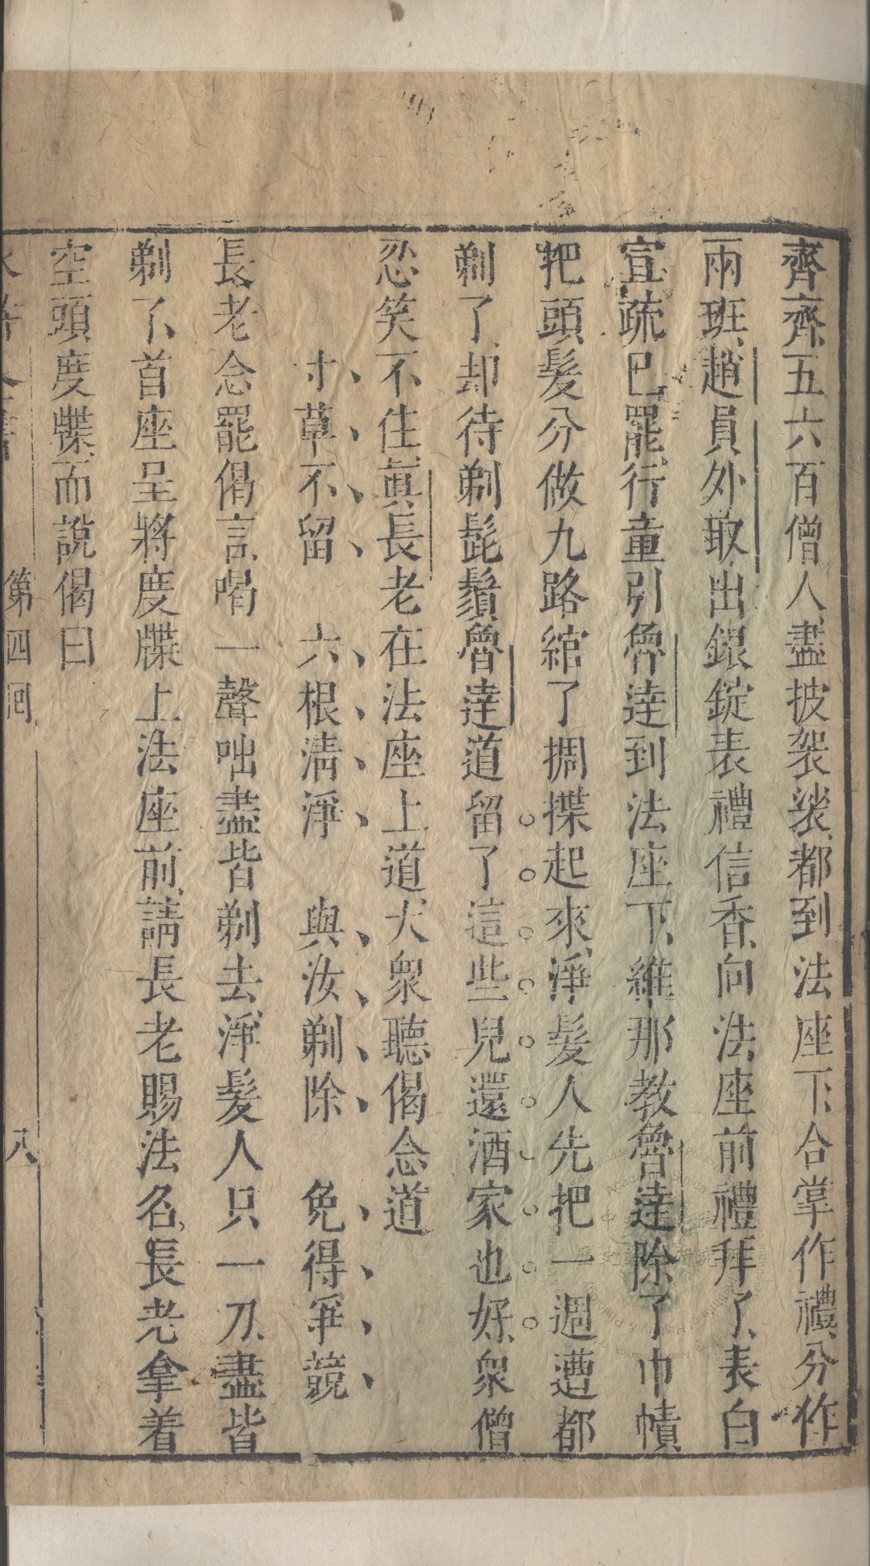 齊齊、五六百僧人、盡披袈裟、都到法座下、合掌作禮、分作
兩班、趙員外取出銀錠表禮信香、向法座前禮拜了、表白
宣疏已罷、行童引魯達到法座下、維那教魯達除了巾幘
把頭髮分做九路綰了𢮿揲起來、淨髮人先把一週遭都
剃了、却待剃髭鬚、魯達道、留了這些兒還洒家也好、衆僧
忍笑不住、真長老在法座上道、大衆聽偈、念道
寸草不留　六根清淨　與汝剃除　免得爭競
長老念罷偈言、喝一聲咄、盡皆剃去、淨髮人只一刀、盡皆
剃了、首座呈將度牒上法座前、請長老賜法名、長老拿着
空頭度牒、而說偈曰
第四囘　八